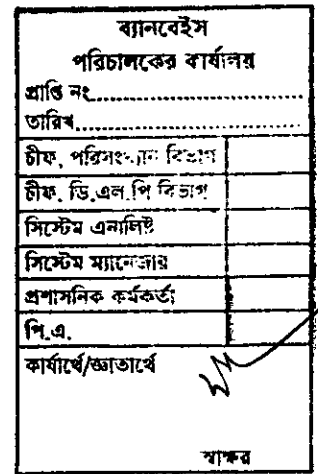 ব্যানবেইস
পরিচালকের কার্যালয়
প্রাপ্তি নং....................
তারিখ.......................
চীফ, পরিসংখ্যান বিভাগ
চীফ, ডি.এল.পি বিভাগ
সিস্টেম এনালিষ্ট
সিস্টেম ম্যানেজার
প্রশাসনিক কর্মকর্তা
পি.এ.
কার্যার্থে/জ্ঞাতার্থে
স্বাক্ষর